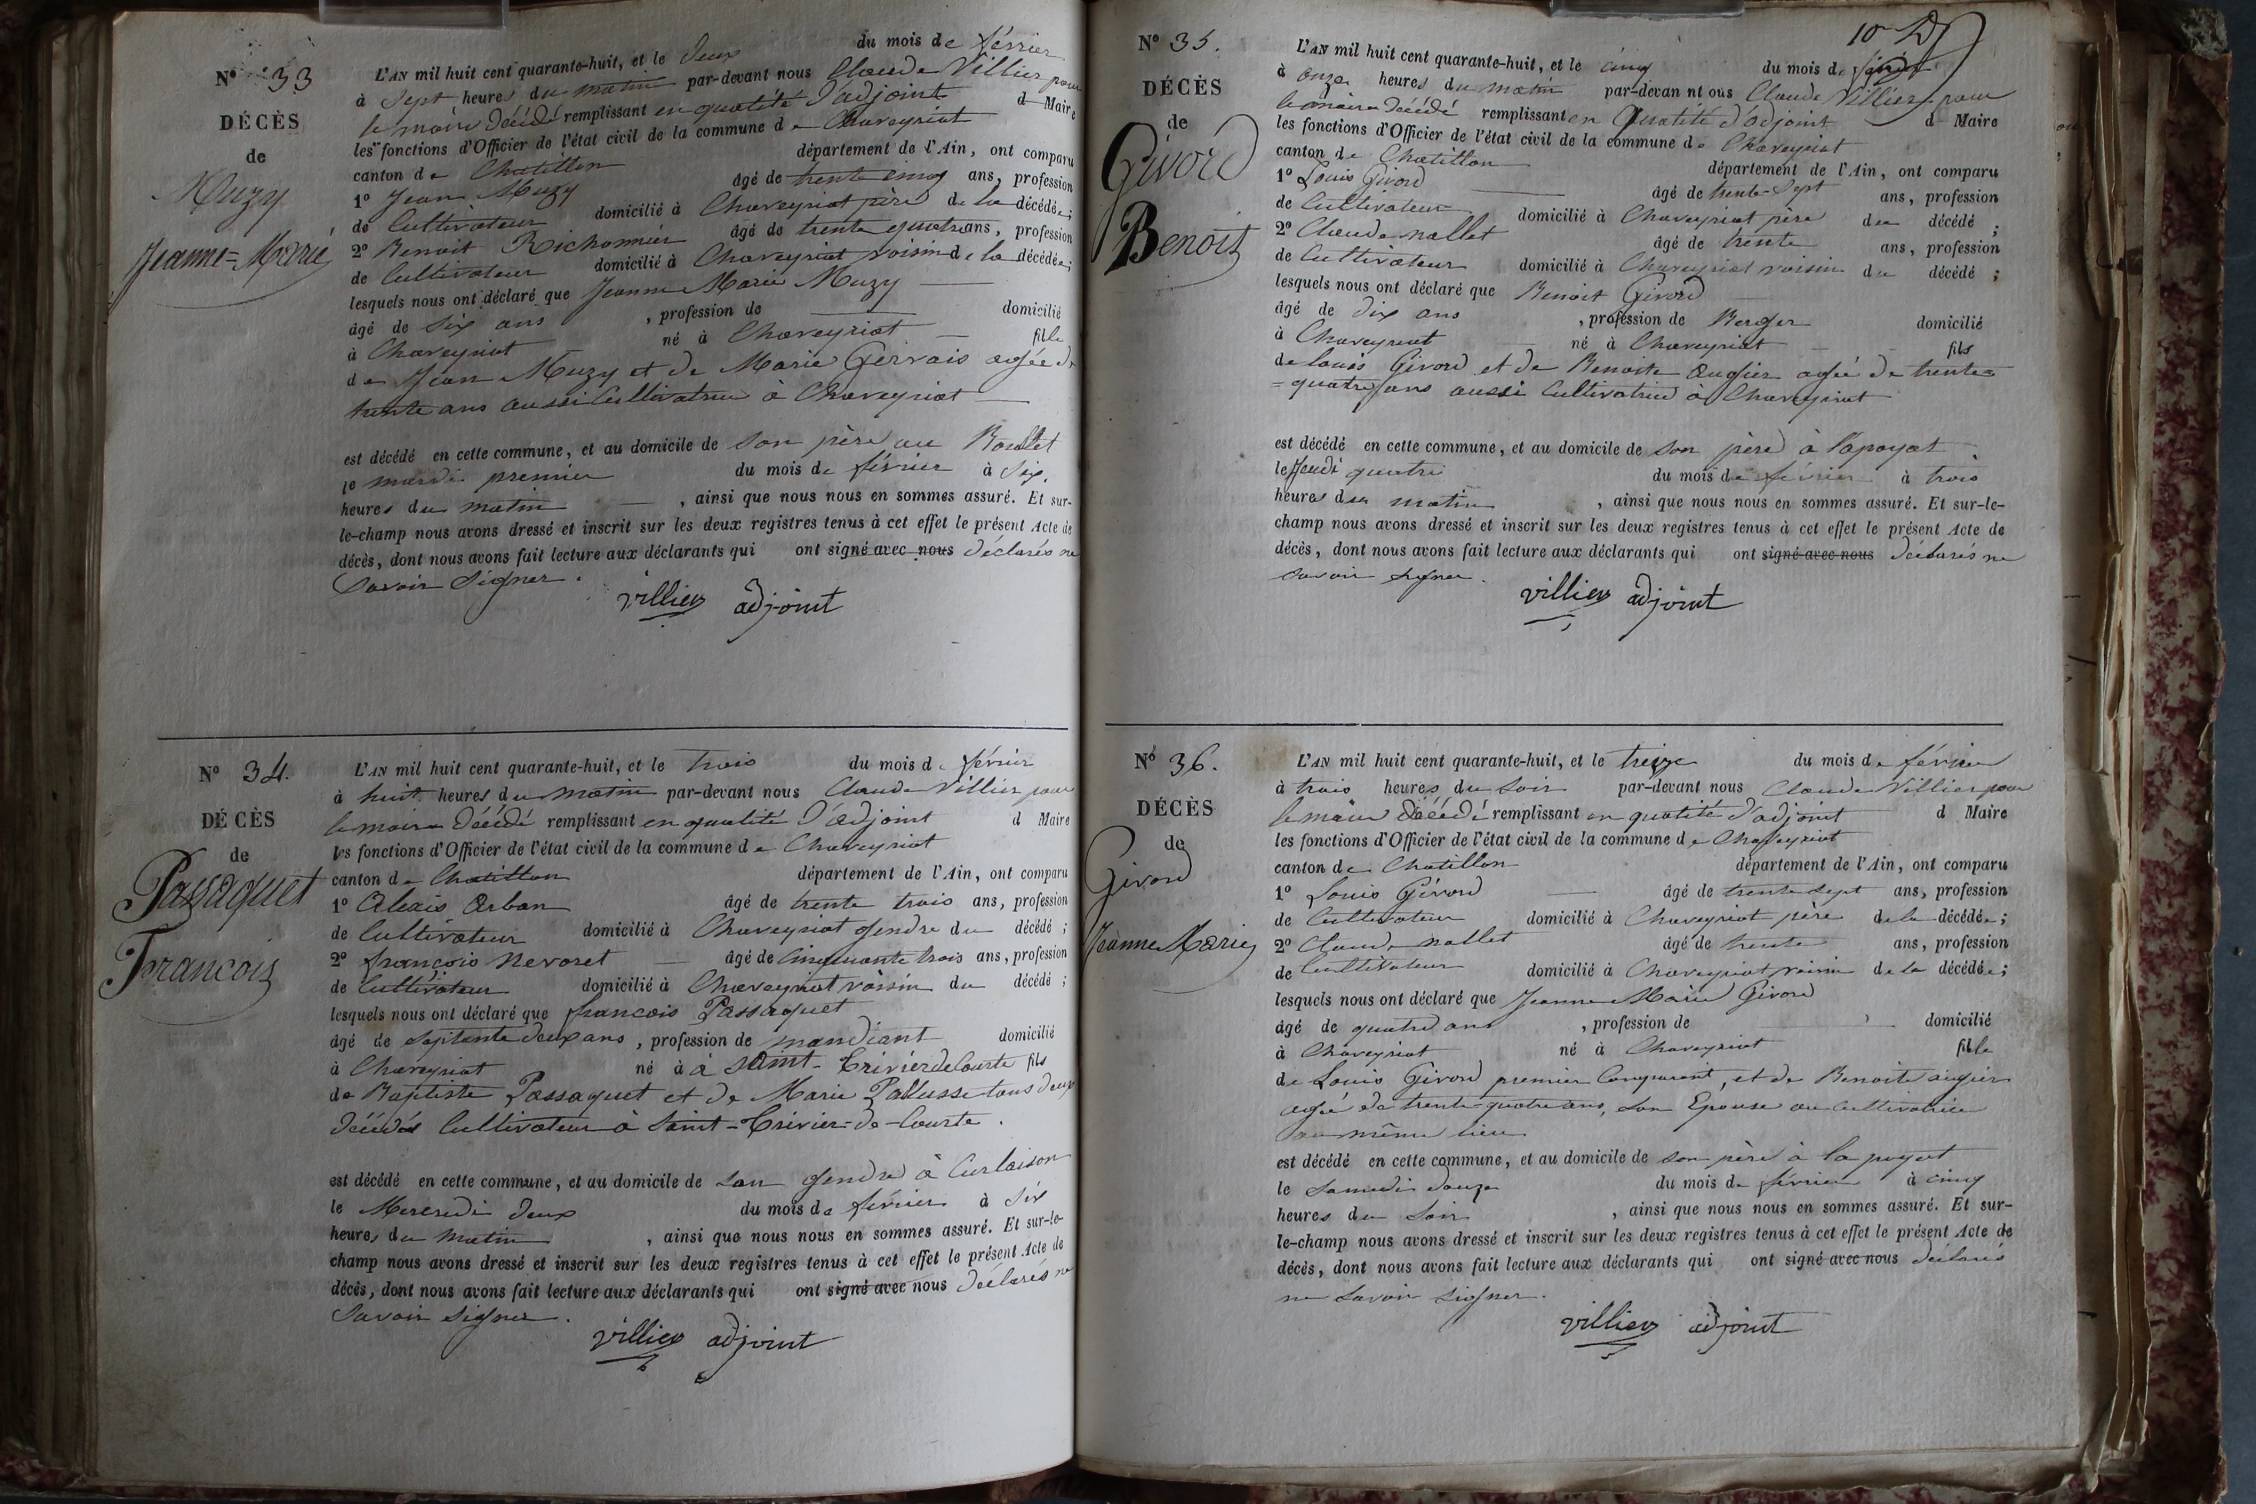 N° 33
DÉCÈS
de
Muzy
Jeanne=Marie
L'AN mil huit cent quarante-huit, et le deux du mois de février
à sept heures du matin par-devant nous Claude Villier pour
le maire décédé remplissant en qualité d'adjoint d Maire
les fonctions d'Officier de l'état civil de la commune de Chaveyriat
canton de Chatillon département de l'Ain, ont comparu
1° Jean Muzy âgé de trente cinq ans, profession
de Cultivateur domicilié à Chaveyriat père de la décédée;
2° Benoit Richonnier âgé de trente quatre ans, profession
de Cultivateur domicilié à Chaveyriat voisin de la décédée;
lesquels nous ont déclaré que Jeanne Marie Muzy
âgé de six ans , profession de domicilié
à Chaveyriat né à Chaveyriat fille
de Jean Muzy et de Marie Gervais agée de
trente ans aussi Cultivatrice à Chaveyriat
est décédé en cette commune, et au domicile de son père au
le mardi premier du mois de février à six
heures du matin , ainsi que nous nous en sommes assuré. Et sur-
le-champ nous avons dressé et inscrit sur les deux registres tenus à cet effet le présent Acte de
décès, dont nous avons fait lecture aux déclarants qui ont signé avec nous déclarés ne
savoir signer.
villier adjoint
N° 34.
DÉCÈS
de
Passaquet
François
L'AN mil huit cent quarante-huit, et le trois du mois de février
à huit heures du matin par-devant nous Claude Villier pour
le maire décédé remplissant en qualité d'adjoint d Maire
les fonctions d'Officier de l'état civil de la commune de Chaveyriat
canton de Chatillon département de l'Ain, ont comparu
1° Alexis Orban âgé de trente trois ans, profession
de Cultivateur domicilié à Chaveyriat gendre du décédé;
2° françois Nevoret âgé de Cinquante trois ans, profession
de Cultivateur domicilié à Chaveyriat voisin du décédé;
lesquels nous ont déclaré que françois Passaquet
âgé de septante deux ans, profession de mandiant domicilié
à Chaveyriat né à à saint-Trivier de Courte fils
de Baptiste Passaquet et de Marie Pallusse tous deux
décédés Cultivateur à Saint-Trivier-de-Courte.
est décédé en cette commune, et au domicile de son gendre à Curlaison
le Mercredi deux du mois de février à six
heures du matin , ainsi que nous nous en sommes assuré. Et sur-le-
champ nous avons dressé et inscrit sur les deux registres tenus à cet effet le présent Acte de
décès, dont nous avons fait lecture aux déclarants qui ont signé avec nous déclarés ne
savoir signer.
villier adjoint
N° 35.
DÉCÈS
de
Givord
Benoit
L'AN mil huit cent quarante-huit, et le cinq du mois de février
à onze heures du matin par-devan nt ous Claude Villier pour
le maire décédé remplissant en qualité d'adjoint d Maire
les fonctions d'Officier de l'état civil de la commune de Chaveyriat
canton de Chatillon département de l'Ain, ont comparu
1° Louis Givord âgé de trente-sept ans, profession
de Cultivateur domicilié à Chaveyriat père du décédé;
2° Claude nallet âgé de trente ans, profession
de Cultivateur domicilié à Chaveyriat voisin du décédé;
lesquels nous ont déclaré que Benoit Givord
âgé de dix ans , profession de Berger domicilié
à Chaveyriat né à Chaveyriat fils
de louis Givord et de Benoite augier agée de trente=
=quatre ans aussi Cultivatrice à Chaveyriat
est décédé en cette commune, et au domicile de son père à lapoyat
le Jeudi quatre du mois de février à trois
heures du matin , ainsi que nous nous en sommes assuré. Et sur-le-
champ nous avons dressé et inscrit sur les deux registres tenus à cet effet le présent Acte de
décès, dont nous avons fait lecture aux déclarants qui ont signé avec nous déclarés ne
savoir signer.
villier adjoint
N° 36.
DÉCÈS
de
Givord
Jeanne Marie
L'AN mil huit cent quarante-huit, et le treize du mois de février
à trois heures du soir par-devant nous Claude Villier pour
le maire décédé remplissant en qualité d'adjoint d Maire
les fonctions d'Officier de l'état civil de la commune de Chaveyriat
canton de Chatillon département de l'Ain, ont comparu
1° Louis Givord âgé de trente sept ans, profession
de Cultivateur domicilié à Chaveyriat père de la décédée;
2° Claude nallet âgé de trente ans, profession
de Cultivateur domicilié à Chaveyriat voisin de la décédée;
lesquels nous ont déclaré que Jeanne Marie Givord
âgé de quatre ans , profession de domicilié
à Chaveyriat né à Chaveyriat fille
de Louis Givord premier Comparant, et de Benoite augier
agée de trente-quatre ans, son Epouse au cultivatrice
au même lieu
est décédé en cette commune, et au domicile de son père à la poyat
le Samedi douze du mois de février à cinq
heures du soir , ainsi que nous nous en sommes assuré. Et sur-
le-champ nous avons dressé et inscrit sur les deux registres tenus à cet effet le présent Acte de
décès, dont nous avons fait lecture aux déclarants qui ont signé avec nous déclarés
ne savoir signer.
villier adjoint